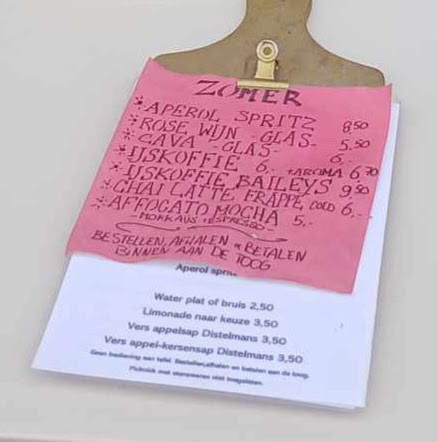 ZOMER
* APEROL SPRITZ 8,50
* ROSE WIJN -GLAS- 5,50
* CAVA -GLAS- 6,-
* IJSKOFFIE 6,- +AROMA 6,70
* IJSKOFFIE BAILEYS 9,50
* CHAI LATTE, FRAPPE, COLD 6,-
* AFFOCATO MOCHA 5,-
BESTELLEN, AFHALEN & BETALEN
BINNEN AAN DE TOOG
Aperol
Water plat of bruis 2,50
Limonade naar keuze 3,50
Vers appelsap Distelmans 3,50
Vers appel-kersensap Distelmans 3,50
Geen bediening aan tafel. Bestellen,afhalen en betalen aan de toog.
Picknick met etenswaren niet toegelaten.